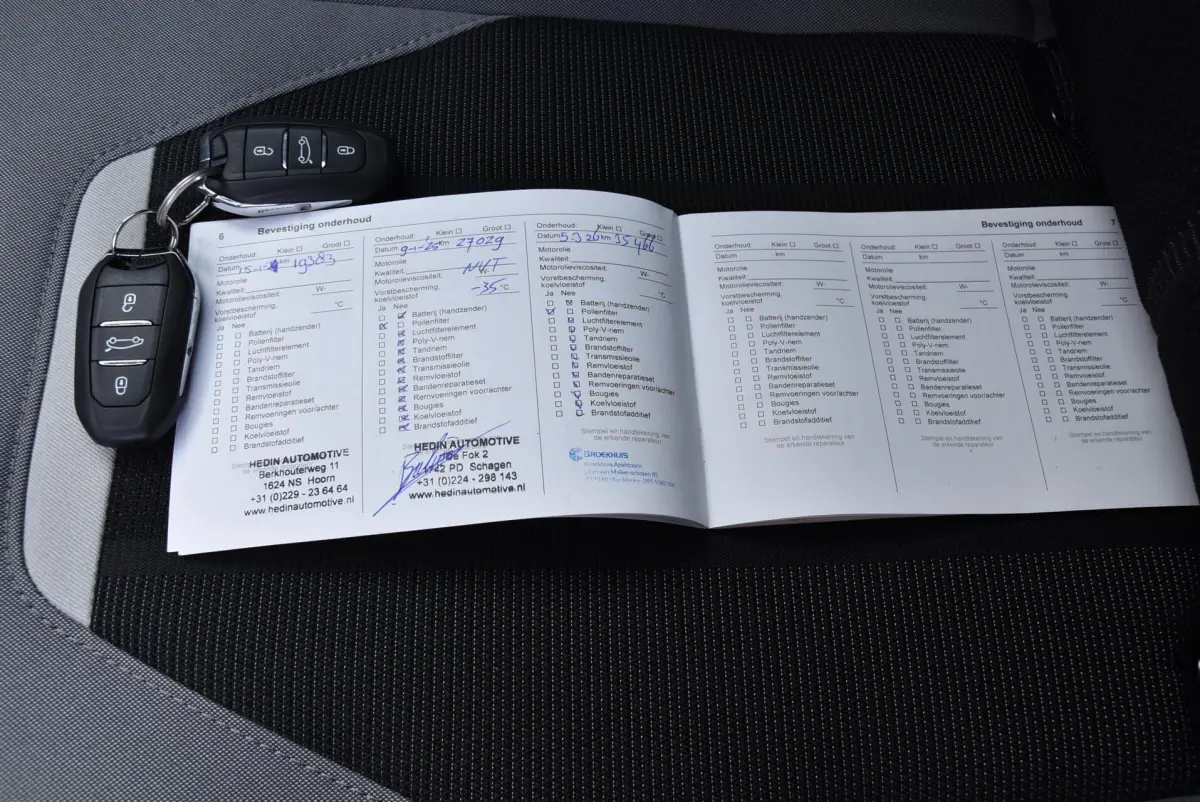 6 Bevestiging onderhoud
Onderhoud: Klein Groot
Datum km 19383
Motorolie
Kwaliteit W-
Motorolieviscositeit:
Vorstbescherming. °C
koelvloeistof
Ja Nee
Batterij (handzender)
Pollenfilter
Luchtfilterelement
Poly-V-riem
Tandriem
Brandstoffilter
Transmissieolie
Remvloeistof
Bandenreparatieset
Remvoeringen voor/achter
Bougies
Koelvloeistof
Brandstofadditief
HEDIN AUTOMOTIVE
Berkhouterweg 11
1624 NS Hoorn
+31 (0)229 - 23 64 64
www.hedinautomotive.nl
Onderhoud: Klein Groot
Datum 9-1-25 km 27029
Motorolie
Kwaliteit:
Motorolieviscositeit:
Vorstbescherming: -35 °C
koelvloeistof
Ja Nee
Batterij (handzender)
Pollenfilter
Luchtfilterelement
Poly-V-riem
Tandriem
Brandstoffilter
Transmissieolie
Remvloeistof
Bandenreparatieset
Remvoeringen voor/achter
Bougies
Koelvloeistof
Brandstofadditief
HEDIN AUTOMOTIVE
De Fok 2
42 PD Schagen
+31 (0)224 - 298 143
www.hedinautomotive.nl
Onderhoud: Klein Groot
Datum 5.3.26 km 35466
Motorolie
Kwaliteit:
Motorolieviscositeit: W-
Vorstbescherming. °C
koelvloeistof
Ja Nee
Batterij (handzender)
Pollenfilter
Luchtfilterelement
Poly-V-riem
Tandriem
Brandstoffilter
Transmissieolie
Remvloeistof
Bandenreparatieset
Remvoeringen voor/achter
Bougies
Koelvloeistof
Brandstofadditief
Stempel en handtekening van
de erkende reparateur
BROEKHUIS
Broekhuis Apeldoorn
Bevestiging onderhoud 7
Onderhoud: Klein Groot
Datum km
Motorolie
Kwaliteit:
Motorolieviscositeit: W-
Vorstbescherming. °C
koelvloeistof
Ja Nee
Batterij (handzender)
Pollenfilter
Luchtfilterelement
Poly-V-riem
Tandriem
Brandstoffilter
Transmissieolie
Remvloeistof
Bandenreparatieset
Remvoeringen voor/achter
Bougies
Koelvloeistof
Brandstofadditief
Stempel en handtekening van
de erkende reparateur
Onderhoud: Klein Groot
Datum km
Motorolie
Kwaliteit:
Motorolieviscositeit: W-
Vorstbescherming. °C
koelvloeistof
Ja Nee
Batterij (handzender)
Pollenfilter
Luchtfilterelement
Poly-V-riem
Tandriem
Brandstoffilter
Transmissieolie
Remvloeistof
Bandenreparatieset
Remvoeringen voor/achter
Bougies
Koelvloeistof
Brandstofadditief
Stempel en handtekening van
de erkende reparateur
Onderhoud: Klein Groot
Datum km
Motorolie
Kwaliteit:
Motorolieviscositeit: W-
Vorstbescherming. °C
koelvloeistof
Ja Nee
Batterij (handzender)
Pollenfilter
Luchtfilterelement
Poly-V-riem
Tandriem
Brandstoffilter
Transmissieolie
Remvloeistof
Bandenreparatieset
Remvoeringen voor/achter
Bougies
Koelvloeistof
Brandstofadditief
Stempel en handtekening van
de erkende reparateur